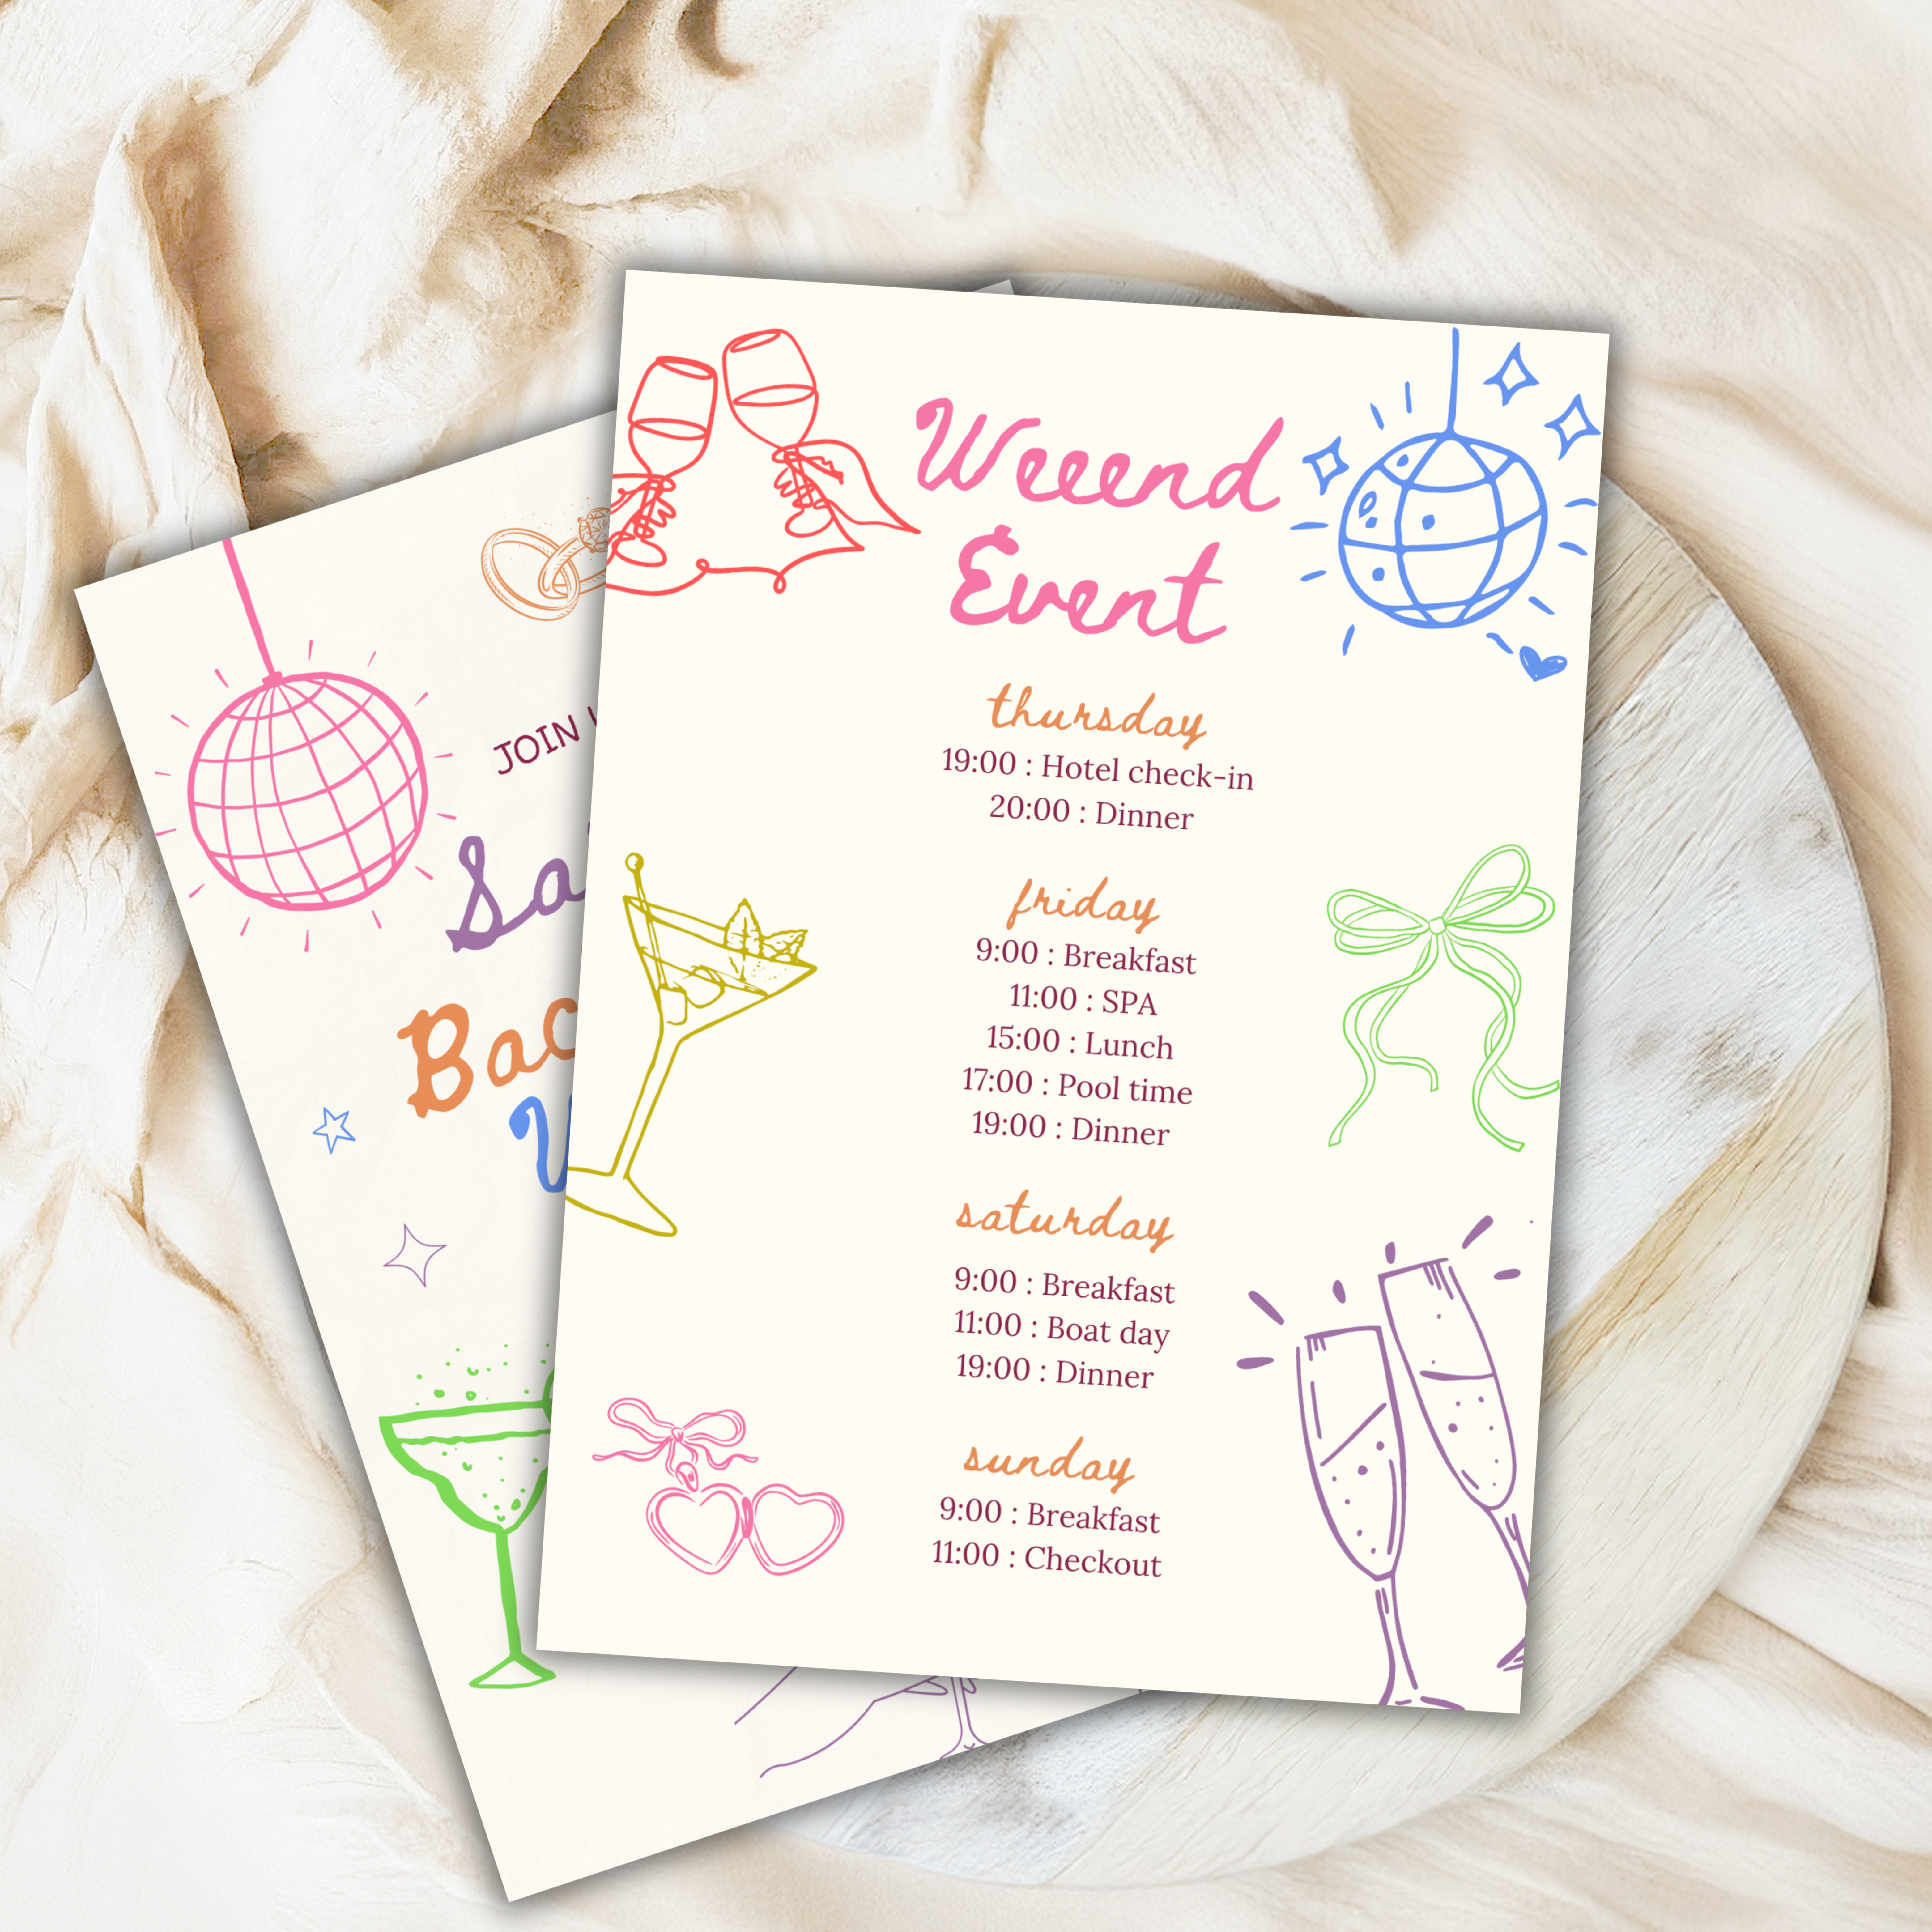 JOIN
Weeend
Event
thursday
19:00 : Hotel check-in
20:00 : Dinner
friday
9:00 : Breakfast
11:00 : SPA
15:00 : Lunch
17:00 : Pool time
19:00 : Dinner
saturday
9:00 : Breakfast
11:00 : Boat day
19:00 : Dinner
sunday
9:00 : Breakfast
11:00 : Checkout